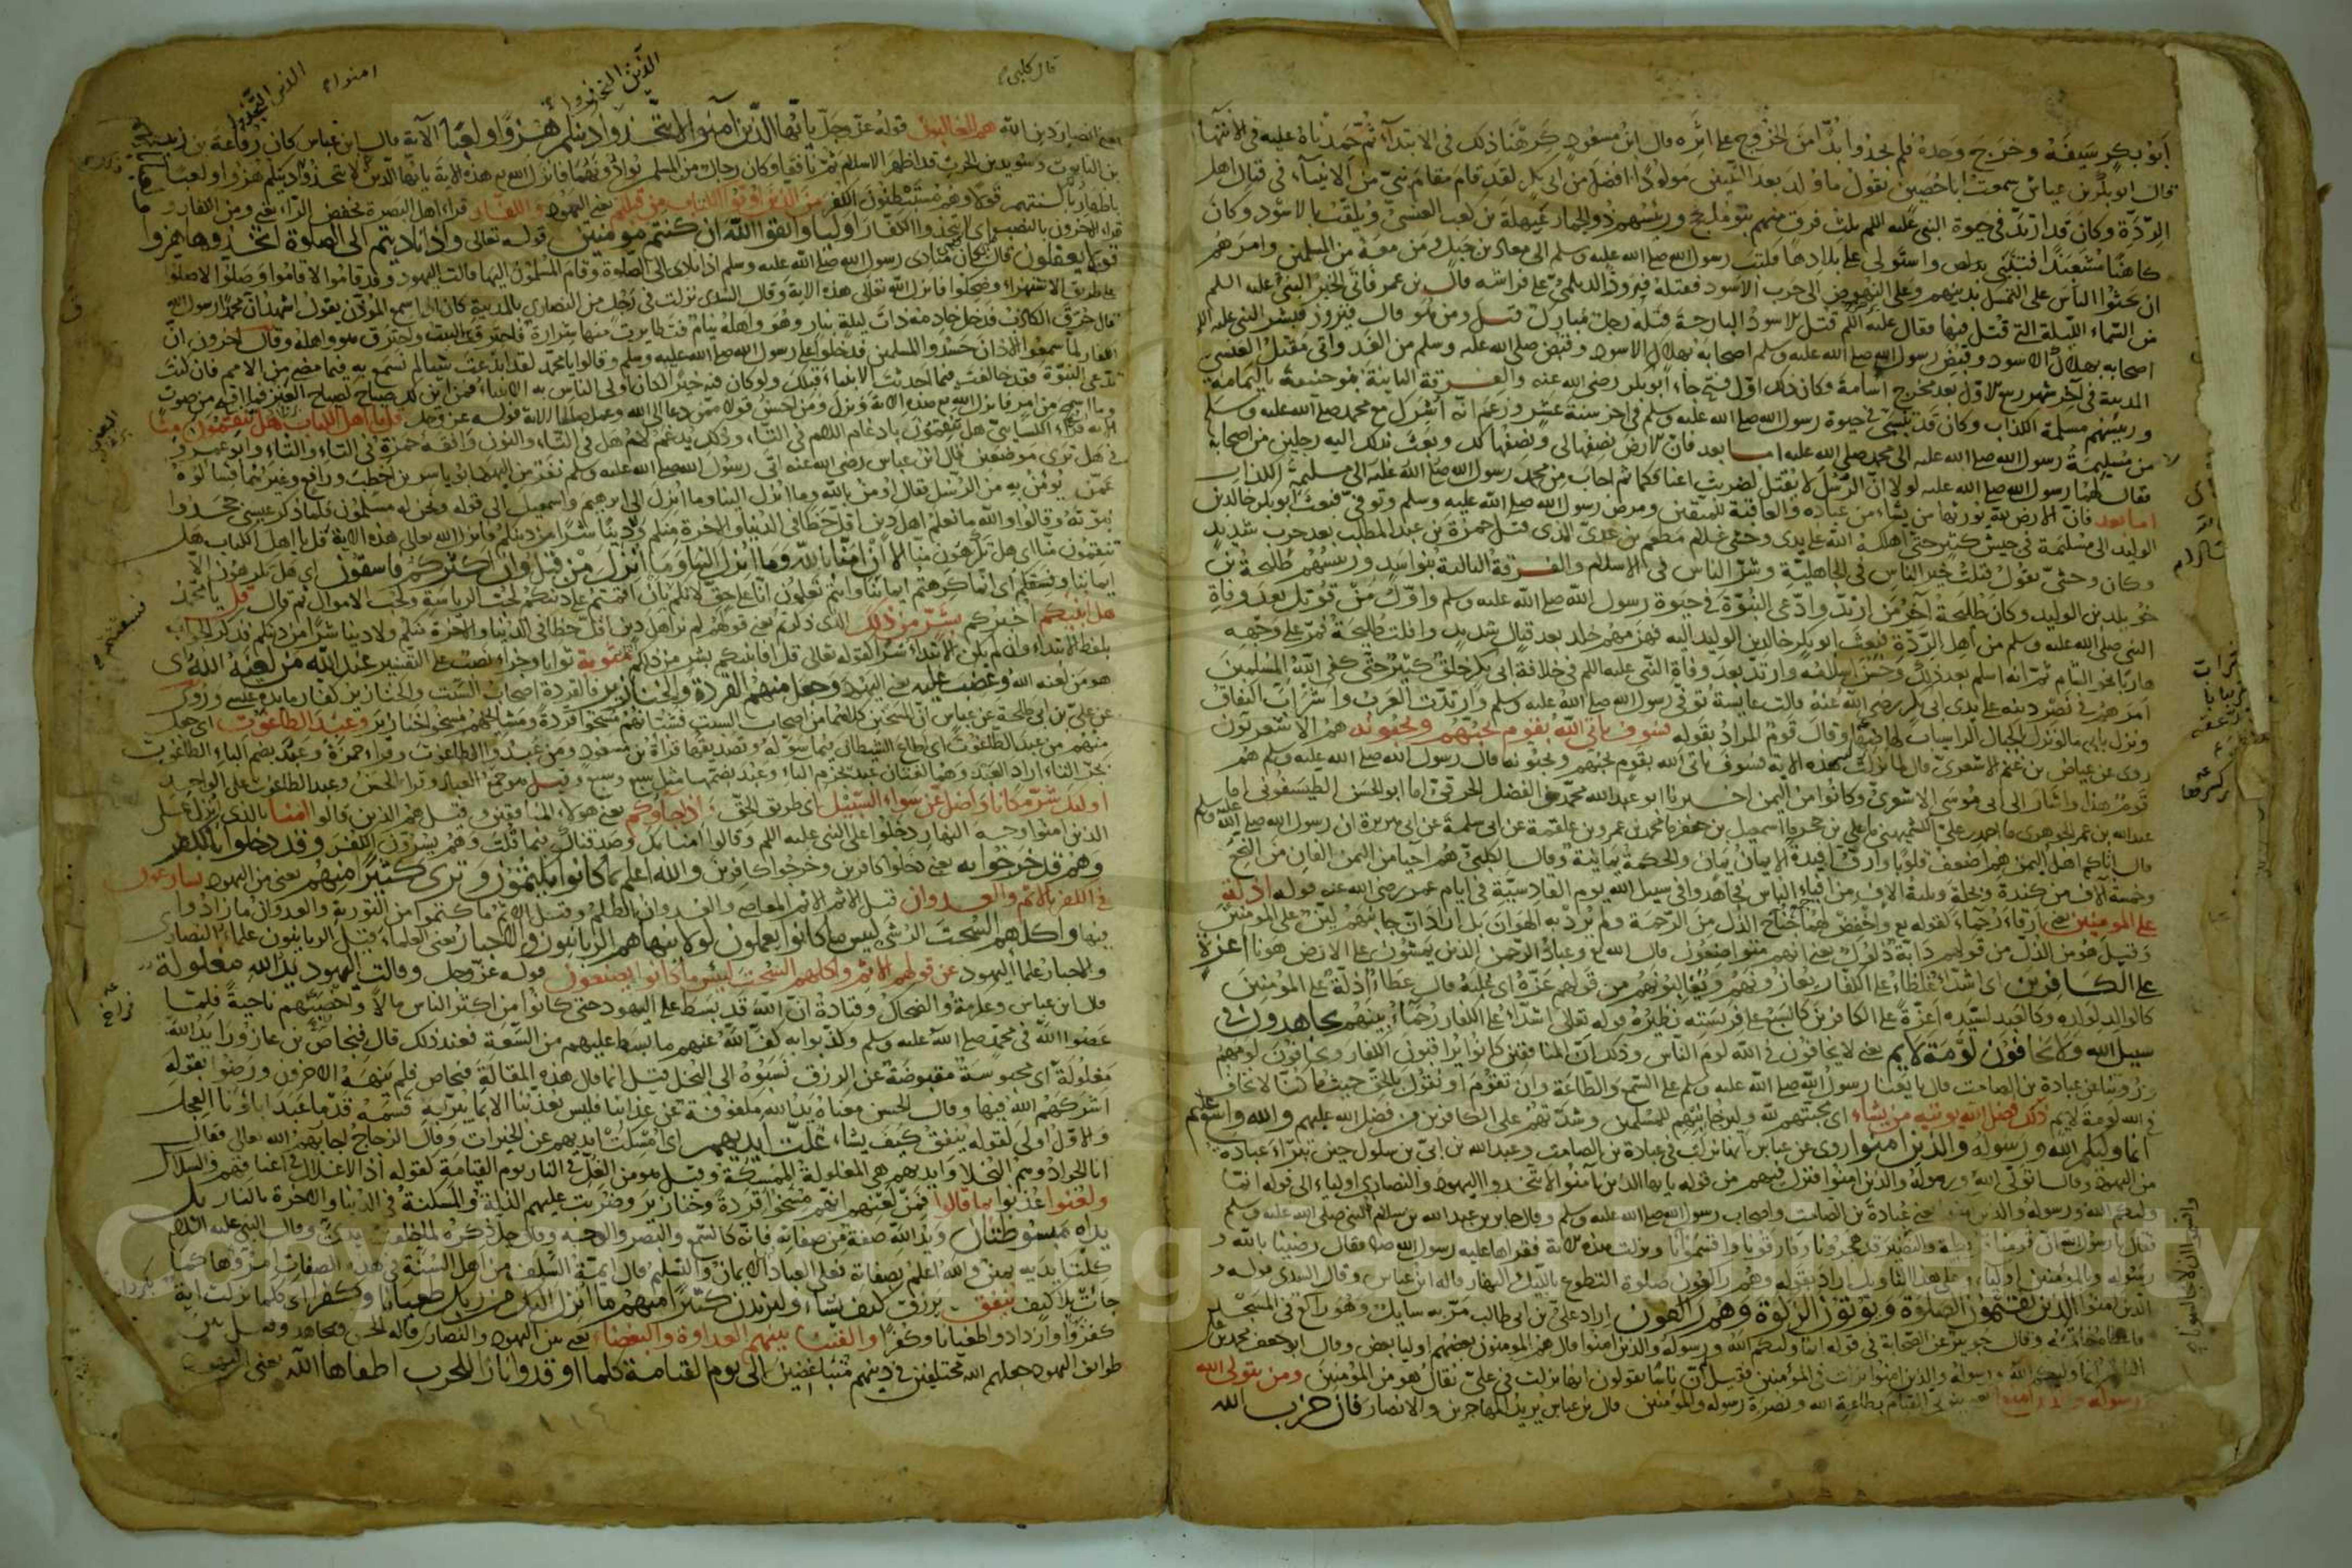 ابو بكر سيفه وخرج وحده فلم يجدوا بدا من الخروج على اثره قال ابن مسعود كرهنا ذلك فى الابتداء ثم حمدناه عليه فى الانتهاء
قال ابو بكر بن عياش سمعت ابا حصين يقول ما ولد بعد النبيين مولود افضل من ابى بكر لقد قام مقام نبى من الانبياء فى قتال اهل
الردة وكان قد ارتد فى حيوة النبى عليه السلم ثلث فرق منهم بنو مدلج ورئيسهم ذو الحمار عيهلة بن كعب العنسى ويلقب بالاسود وكان
كاهنا مشعبذا فتنبى باليمن واستولى على بلادها فكتب رسول الله صلى الله عليه وسلم الى معاذ بن جبل ومن معه من المسلمين وامرهم
ان يحثوا الناس على التمسك بدينهم وعلى النهوض الى حرب الاسود فقتله فيروز الديلمى على فراشه قال بن عمر فاتى الخبر النبى عليه السلم
من السماء الليلة التى قتل فيها فقال عليه السلم قتل الاسود البارحة قتله رجل مبارك قيل ومن هو قال فيروز فبشر النبى عليه السلم
اصحابه بهلاك الاسود وقبض رسول الله صلى الله عليه وسلم من الغد واتى مقتل العنسى
المدينة فى آخر شهر ربيع الاول بعد مخرج اسامة وكان ذلك اول فتح جاء ابو بكر رضى الله عنه والفرقة الثانية بنو حنيفة باليمامة
ورئيسهم مسيلمة الكذاب وكان قد تنبى فى حيوة رسول الله صلى الله عليه وسلم فى آخر سنة عشر وزعم انه اشرك مع محمد صلى الله عليه وسلم
من مسيلمة رسول الله الى محمد صلى الله عليه اما بعد فان الارض نصفها لى ونصفها لك وبعث بذلك اليه رجلين من اصحابه
فقال لهما رسول الله صلى الله عليه لولا ان الرسل لا يقتل لضربت اعناقكما ثم اجاب من محمد رسول الله صلى الله عليه الى مسيلمة الكذاب
اما بعد فان الارض لله يورثها من يشاء من عباده والعاقبة للمتقين ومرض رسول الله صلى الله عليه وسلم وتوفى فبعث ابو بكر خالد بن
الوليد الى مسيلمة فى جيش كثير حتى اهلكه الله على يدى وحشى غلام مطعم بن عدى الذى قتل حمزة بن عبد المطلب بعد حرب شديد
وكان وحشى يقول قتلت خير الناس فى الجاهلية وشر الناس فى الاسلام والفرقة الثالثة بنو اسد ورئيسهم طليحة بن
خويلد بن الوليد وكان طليحة آخر من ارتد وادعى النبوة فى حيوة رسول الله صلى الله عليه وسلم واول من قوتل بعد وفاة
النبى صلى الله عليه وسلم من اهل الردة فبعث ابو بكر خالد بن الوليد اليه فهزمهم خالد بعد قتال شديد وافلت طليحة فمر على وجهه
هاربا نحو الشام ثم انه اسلم بعد ذلك وحسن اسلامه وارتد بعد وفاة النبى عليه السلم فى خلافة ابى بكر خلق كثير حتى كفى الله المسلمين
امرهم ونصر دينه على يدى ابى بكر رضى الله عنه قالت عايشة توفى رسول الله صلى الله عليه وسلم وارتدت العرب واشرأب النفاق
ونزل بابى ما لو نزل بالجبال الراسيات لهاضها وقال قوم المراد بقوله فسوف ياتى الله بقوم يحبهم ويحبونه هم الاشعريون
روى عن عياض بن غنم الاشعرى قال لما نزلت هذه الاية فسوف ياتى الله بقوم يحبهم ويحبونه قال رسول الله صلى الله عليه وسلم هم
قوم هذا واشار الى ابى موسى الاشعرى وكانوا من اليمن اخبرنا ابو عبد الله محمد بن الفضل الخرقى انا ابو الحسن الطيسفونى انا
عبد الله بن عمر الجوهرى نا احمد بن على الكشميهنى نا على بن حجر نا اسمعيل بن جعفر نا محمد بن عمرو بن علقمة عن ابى سلمة عن ابى هريرة ان رسول الله صلى الله عليه وسلم
قال اتاكم اهل اليمن هم اضعف قلوبا وارق افئدة الايمان يمان والحكمة يمانية وقال الكلبى هم احيا من اليمن الفان من النخع
وخمسة آلاف من كندة وبجلة وثلثة الاف من افياء الناس فجاهدوا فى سبيل الله يوم القادسية فى ايام عمر رضى الله عنه قوله اذلة
على المومنين يعنى ارقاء رحماء لقوله واخفض لهما جناح الذل من الرحمة ولم يرد به الهوان بل اراد ان جانبهم لين على المومنين
وقيل هو من الذل من قولهم دابة ذلول يعنى انهم متواضعون قال الله وعباد الرحمن الذين يمشون على الارض هونا اعزة
على الكافرين اى اشداء غلظاء على الكفار يعازونهم ويغالبونهم من قولهم عزه اى غلبه قال عطاء اذلة على المؤمنين
كالوالد لولده وكالعبد لسيده اعزة على الكافرين كالسبع على فريسته نظيره قوله تعالى اشداء على الكفار رحماء بينهم يجاهدون فى
سبيل الله ولا يخافون لومة لايم يعنى لا يخافون فى الله لوم الناس وذلك ان المنافقين كانوا يراقبون الكفار ويخافون لومهم
وروينا عن عبادة بن الصامت قال بايعنا رسول الله صلى الله عليه وسلم على السمع والطاعة وان نقوم او نقول بالحق حيث ما كنا لا نخاف
فى الله لومة لايم ذلك فضل الله يوتيه من يشاء اى محبتهم لله ولين جانبهم للمسلمين وشدتهم على الكافرين من فضل الله عليهم والله واسع عليم
انما وليكم الله ورسوله والذين امنوا روى عن عباس انها نزلت فى عبادة بن الصامت وعبد الله بن ابى بن سلول حين تبرأ عبادة
من اليهود وقال اتولى الله ورسوله والذين امنوا فنزل فيهم من قوله يايها الذين آمنوا لا تتخذوا اليهود والنصارى اولياء الى قوله انما
وليكم الله ورسوله والذين امنوا يعنى عبادة بن الصامت واصحاب رسول الله صلى الله عليه وسلم وقال جابر بن عبد الله جاء عبد الله بن سلام الى النبى صلى الله عليه وسلم
فقال يا رسول الله ان قومنا قريظة والنضير قد هجرونا وفارقونا واقسموا ونزلت هذه الاية فقراها عليه رسول الله فقال رضينا بالله و
رسوله وبالمؤمنين اولياء وعلى هذا التاويل اراد بقوله وهم راكعون صلوة التطوع بالليل والنهار قاله ابن عباس وقال السدى قوله و
الذين امنوا الذين يقيمون الصلوة ويوتون الزكوة وهم راكعون اراد على بن ابى طالب مر به سايل وهو راكع فى المسجد
فاعطاه خاتمه وقال جويبر عن الضحاك فى قوله انما وليكم الله ورسوله والذين امنوا قال هم المومنون بعضهم اوليا بعض وقال ابو جعفر محمد بن على
انما وليكم الله ورسوله والذين امنوا نزلت فى المؤمنين فقيل ان ناسا يقولون انها نزلت فى على فقال هو من المؤمنين ومن يتولى الله
ورسوله والذين امنوا يعنى يتولى القيام بطاعة الله ونصرة رسوله والمؤمنين قال بن عباس يريد المهاجرين والانصار فان حزب الله
قال كلبى
يعنى انصار دين الله هم الغالبون قوله عز وجل يا ايها الذين آمنوا لا تتخذوا الذين اتخذوا دينكم هزوا ولعبا الآية قال ابن عباس كان رفاعة بن زيد
بن التابوت وسويد بن الحرث قد اظهر الاسلام ثم نافقا وكان رجال من المسلمين يوادونهما فانزل الله هذه الاية يا ايها الذين لا تتخذوا دينكم هزوا ولعبا
باظهار بالسنتهم قولا وهم مستبطنون الكفر من الذين اوتوا الكتاب من قبلكم يعنى اليهود والكفار قراء اهل البصرة بخفض الراء يعنى ومن الكفار و
قراء الاخرون بالنصب اى لا تتخذوا الكفار اوليا واتقوا الله ان كنتم مومنين قوله تعالى واذا ناديتم الى الصلوة اتخذوها هزوا
قوم لا يعقلون قال كان منادى رسول الله صلى الله عليه وسلم اذا نادى الى الصلوة وقام المسلمون اليها قالت اليهود وقد قاموا لا قاموا وصلوا لا صلوا
على طريق الاستهزاء وضحكوا فانزل الله تعالى هذه الاية وقال السدى نزلت فى رجل من النصارى بالمدينة كان اذا سمع المؤذن يقول اشهد ان محمدا رسول الله
قال حرق الكاذب فدخل خادمه ذات ليلة بنار وهو واهله نيام فتطايرت منها شرارة فاحترق البيت واحترق هو واهله وقال آخرون ان
الكفار لما سمعوا الاذان حسدوا المسلمين فدخلوا على رسول الله صلى الله عليه وسلم وقالوا يا محمد لقد ابدعت شيئا لم نسمع به فيما مضى من الامم فان كنت
تدعى النبوة فقد خالفت فيما احدثت الانبياء قبلك ولو كان فيه خير لكان اولى الناس به الانبياء فمن اين لك صياح كصياح العير فما اقبح من صوت
وما اسمج من امر فانزل الله هذه الاية ونزل ومن احسن قولا ممن دعا الى الله وعمل صالحا الاية قوله عز وجل قل يا اهل الكتاب هل تنقمون منا
الاية قراء الكسائى هل تنقمون بادغام اللام فى التاء وكذلك يدغم لام هل فى التاء والثاء والنون وافقه حمزة فى التاء والثاء وابو عمرو
فى هل ترى موضعين قال ابن عباس رضى الله عنه اتى رسول الله صلى الله عليه وسلم نفر من اليهود ابو ياسر بن اخطب ورافع وغيرهما فسألوه
عمن يؤمن به من الرسل فقال اومن بالله وما انزل الينا وما انزل الى ابرهيم واسمعيل الى قوله ونحن له مسلمون فلما ذكر عيسى جحدوا
نبوته وقالوا والله ما نعلم اهل دين اقل حظا فى الدنيا والاخرة منكم ولا دينا شرا من دينكم فانزل الله تعالى هذه الاية قل يا اهل الكتاب هل
تنقمون منا اى هل تكرهون منا الا ان امنا بالله وما انزل الينا وما انزل من قبل وان اكثركم فاسقون اى هل تكرهون الا
ايماننا وفسقكم اى انما كرهتم ايماننا وانتم تعلمون انا على حق لانكم بان اقمتم على دينكم لحب الرياسة ولحب الاموال ثم قال قل يا محمد
هل انبئكم اخبركم بشر من ذلك الذى ذكرتم يعنى قولهم لم نر اهل دين اقل حظا فى الدنيا والاخرة منكم ولا دينا شرا من دينكم فذكر الجواب
بلفظ الابتداء وان لم يكن الابتداء شرا لقوله تعالى قل افانبئكم بشر من ذلكم مثوبة ثوابا وجزاء نصب على التفسير عند الله من لعنه الله اى
هو من لعنه الله وغضب عليه يعنى اليهود وجعل منهم القردة والخنازير فالقردة اصحاب السبت والخنازير كفار مايدة عيسى وروى
عن على بن ابى طلحة عن عباس ان المسخين كلاهما من اصحاب السبت فشبانهم مسخوا قردة ومشايخهم مسخوا خنازير وعبد الطاغوت اى جعل
منهم من عبد الطاغوت اى اطاع الشيطان فيما سول له وتصديقها قراة بن مسعود ومن عبدوا الطاغوت وقراء حمزة وعبد بضم الباء الطاغوت
بجر التاء اراد العبد وهما لغتان عبد بجزم الباء وعبد بضمها مثل سبع وسبع وقيل هو جمع العباد وقراء الحسن وعبد الطاغوت على الواحد
اولئك شر مكانا واضل عن سواء السبيل اى طريق الحق واذا جاؤكم يعنى هولاء المنافقين وقيل هم الذين قالوا امنا بالذى انزل على
الذين امنوا وجه النهار دخلوا على النبى عليه السلم وقالوا امنا بك وصدقناك فيما قلت وهم يسرون الكفر وقد دخلوا بالكفر
وهم قد خرجوا به يعنى دخلوا كافرين وخرجوا كافرين والله اعلم بما كانوا يكتمون وترى كثيرا منهم يعنى من اليهود يسارعون
فى الكفر بالاثم والعدوان قيل الاثم الاثم المعاصى والعدوان الظلم وقيل الاثم ما كتموا من التورية والعدوان ما زادوا
فيها واكلهم السحت الرشى لبيس ما كانوا يعملون لولا ينهاهم الربانيون والاحبار يعنى العلماء قيل الربانيون علماء النصارى
والاحبار علما اليهود عن قولهم الاثم واكلهم السحت لبئس ما كانوا يصنعون قوله عز وجل وقالت اليهود يد الله مغلولة
قال ابن عباس وعكرمة والضحاك وقتادة ان الله قد بسط على اليهود حتى كانوا من اكثر الناس مالا واخصبهم ناحية فلما
عصوا الله فى محمد صلى الله عليه وسلم وكذبوا به كف الله عنهم ما بسط عليهم من السعة فعند ذلك قال فنحاص بن عازورا يد الله
مغلولة اى محبوسة مقبوضة عن الرزق نسبوه الى البخل قيل انما قال هذه المقالة فنحاص فلم ينهه الاخرون ورضوا بقوله
اشركهم الله فيها وقال الحسن معناه يد الله مكفوفة عن عذابنا فليس يعذبنا الا بما يبر به قسمه قدر ما عبد اباؤنا العجل
والاول اولى لقوله ينفق كيف يشاء غلت ايديهم اى امسكت ايديهم عن الخيرات وقال الزجاج اجابهم الله تعالى فقال
انا الجواد وهم البخلا وايديهم هى المغلولة الممسكة وقيل هو من الغل فى النار يوم القيامة لقوله اذ الاغلال فى اعناقهم والسلاسل
ولعنوا عذبوا بما قالوا فمن لعنهم انهم مسخوا قردة وخنازير وضربت عليهم الذلة والمسكنة فى الدنيا والاخرة بالنار بل
يداه مبسوطتان ويد الله صفة من صفاته فانه كالسمع والبصر والوجه وقال جل ذكره لما خلقت بيدى وقال النبى عليه السلام
كلتا يديه يمين والله اعلم بصفاته فعلى العباد الايمان والتسليم قال ايمة السلف من اهل السنة فى هذه الصفات امروها كما
جاءت بلا كيف ينفق يرزق كيف يشاء وليزيدن كثيرا منهم ما انزل اليك من ربك طغيانا وكفرا اى كلما نزلت اية
كفروا وازدادوا طغيانا وكفرا والقينا بينهم العداوة والبغضاء يعنى بين اليهود والنصارى قاله الحسن ومجاهد وقيل بين
طوايف اليهود جعلهم الله مختلفين فى دينهم متباغضين الى يوم القيامة كلما اوقدوا نارا للحرب اطفاها الله يعنى اليهود